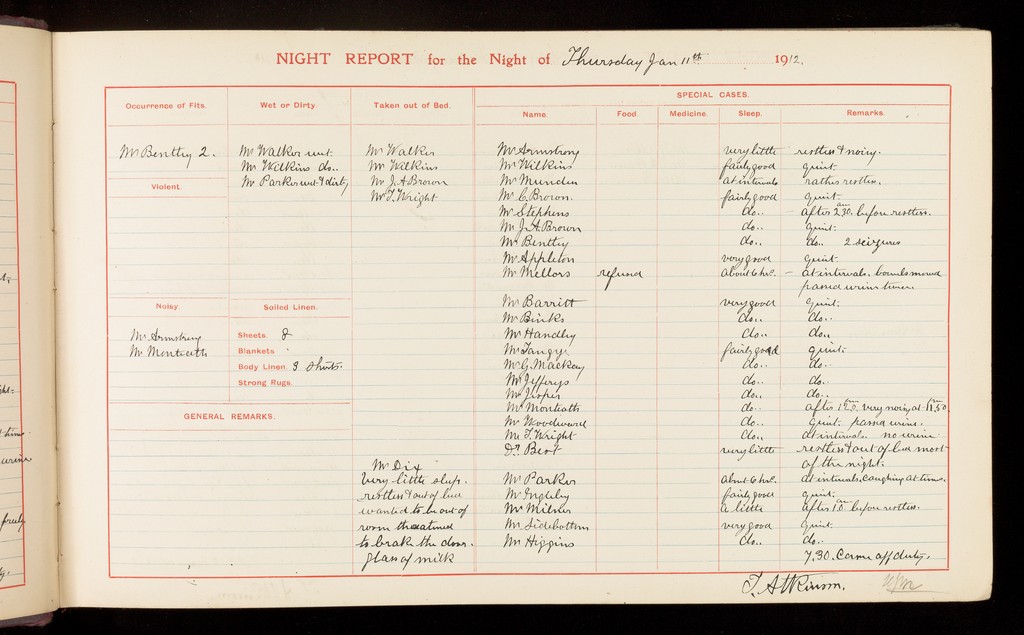 NIGHT REPORT for the Night of Thursday Jan 11th 1912.
Occurrence of Fits.
Mr Bentley 2.
Violent.
Noisy.
Mr Armstrong
Mr Monteath
Wet or Dirty.
Mr Walker wet.
Mr Wilkins do..
Mr Parker wet & dirty
Soiled Linen.
Sheets. 8
Blankets
Body Linen. 3 Shirts.
Strong Rugs.
GENERAL REMARKS.
Taken out of Bed.
Mr Walker
Mr Wilkins
Mr J. A. Brown
Mr T. Wright
Mr Dix
very little sleep.
restless & out of bed
wanted to be out of
room threatened
to brake the door.
glass of milk
SPECIAL CASES.
Name. Food. Medicine. Sleep. Remarks.
Mr Armstrong very little restless & noisy.
Mr Wilkins fairly good quiet.
Mr Munden at intervals rather restless.
Mr C. Brown. fairly good quiet.
Mr Stephens do.. – after 2.30 am before restless.
Mr J. A. Brown do.. quiet.
Mr Bentley do.. do.. 2 seizures
Mr Appleton very good quiet.
Mr Mellors refused about 6 hrs. – at intervals. bowels moved
passed urine twice.
Mr Barritt very good quiet.
Mr Binks do.. do..
Mr Handley do.. do..
Mr Tangye fairly good quiet.
Mr G. Mackay do.. do..
Mr Jefferys do.. do..
Mr Jesper do.. do..
Mr Monteath do.. after very noisy at 11.50 pm
Mr Woodward do.. quiet. passed urine.
Mr T. Wright do.. at intervals. no urine
Dr Bert very little restless & out of bed most
of the night.
Mr Parker about 6 hrs. at intervals. coughing at times.
Mr Ingleby fairly good quiet.
Mr Milner a little after 1.0 am before restless.
Mr Sidebottom very good quiet.
Mr Higgins do.. do..
7.30. Came off duty.
T. Atkinson.